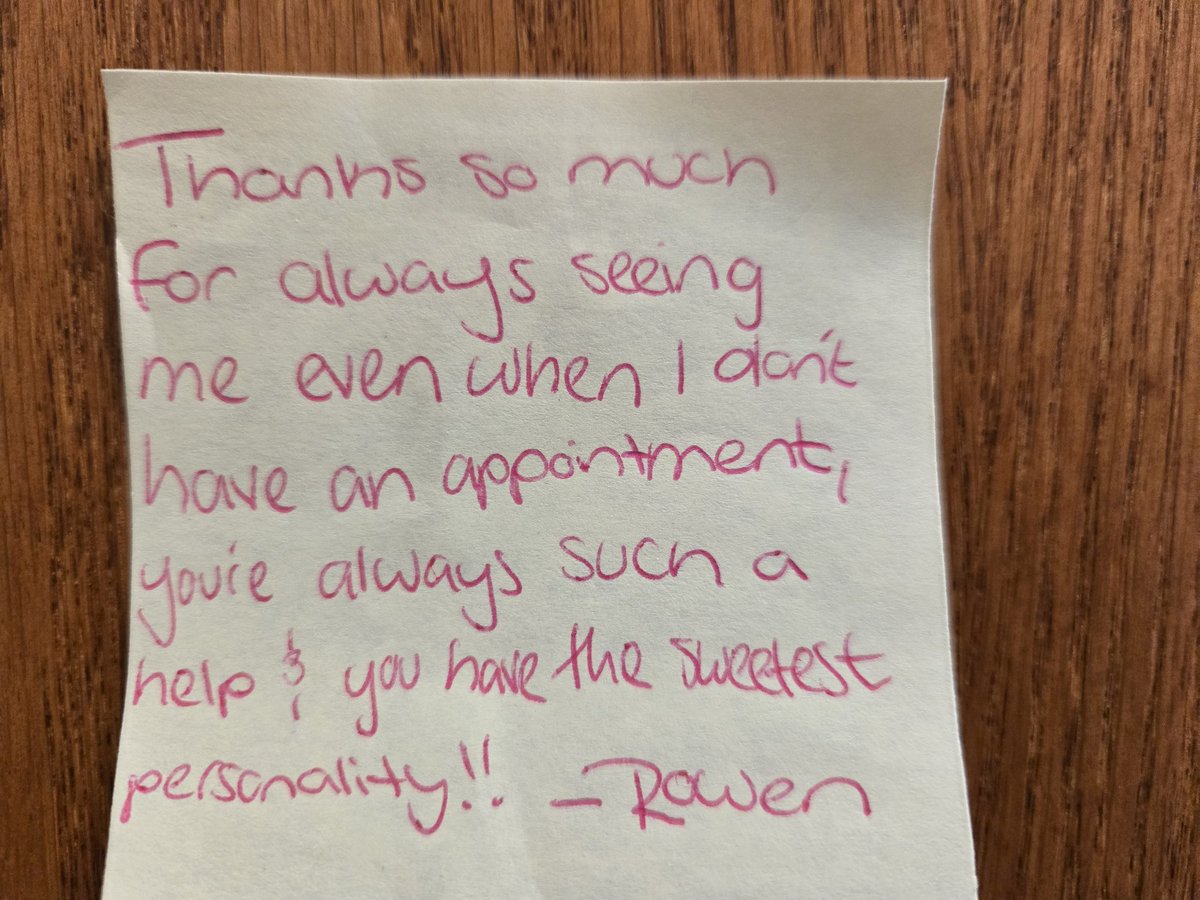 Thanks so much
for always seeing
me even when I don't
have an appointment,
you're always such a
help & you have the sweetest
personality!! - Rowen